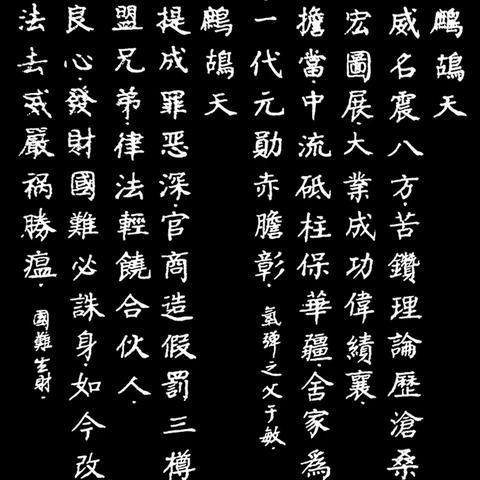 鷓鴣天
威名震八方.苦鑽理論歷滄桑
宏圖展.大業成功偉績襄.
擔當.中流砥柱保華疆.舍家為
一代元勛赤膽彰.
氢彈之父于敏.
鷓鴣天
提成罪惡深.官商造假罰三樽
盟兄弟.律法輕饒合伙人.
良心.發財國難必誅身.如今改
法去威嚴祸勝瘟.
國難生財.